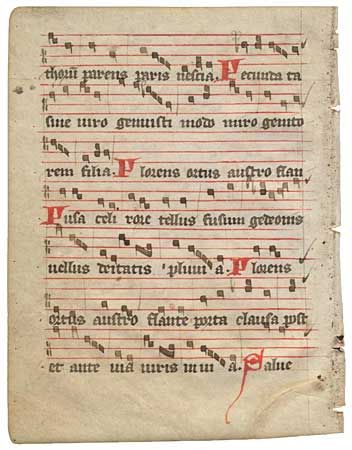 thorū parens paris nescia. Fecunda ta
sine uiro genuisti modo miro genito
rem filia. Florens ortus austro flan
Fusa celi rore tellus fusum gedeonis
uellus deitatis pluuia. Florens
ortus austro flante porta clausa post
et ante uia uiris inuia. Salue